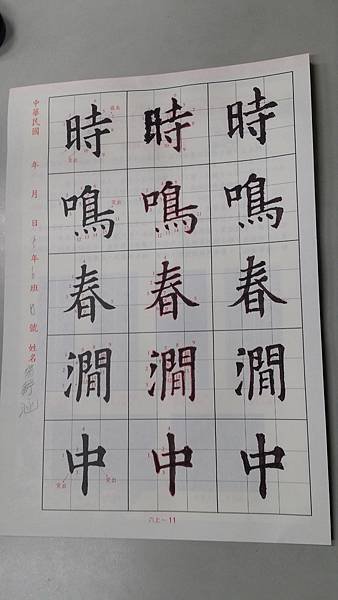 時 時 時
鳴 鳴 鳴
春 春 春
澗 澗 澗
中 中 中
中華民國 年 月 日 年 班 號 姓名
六上~11